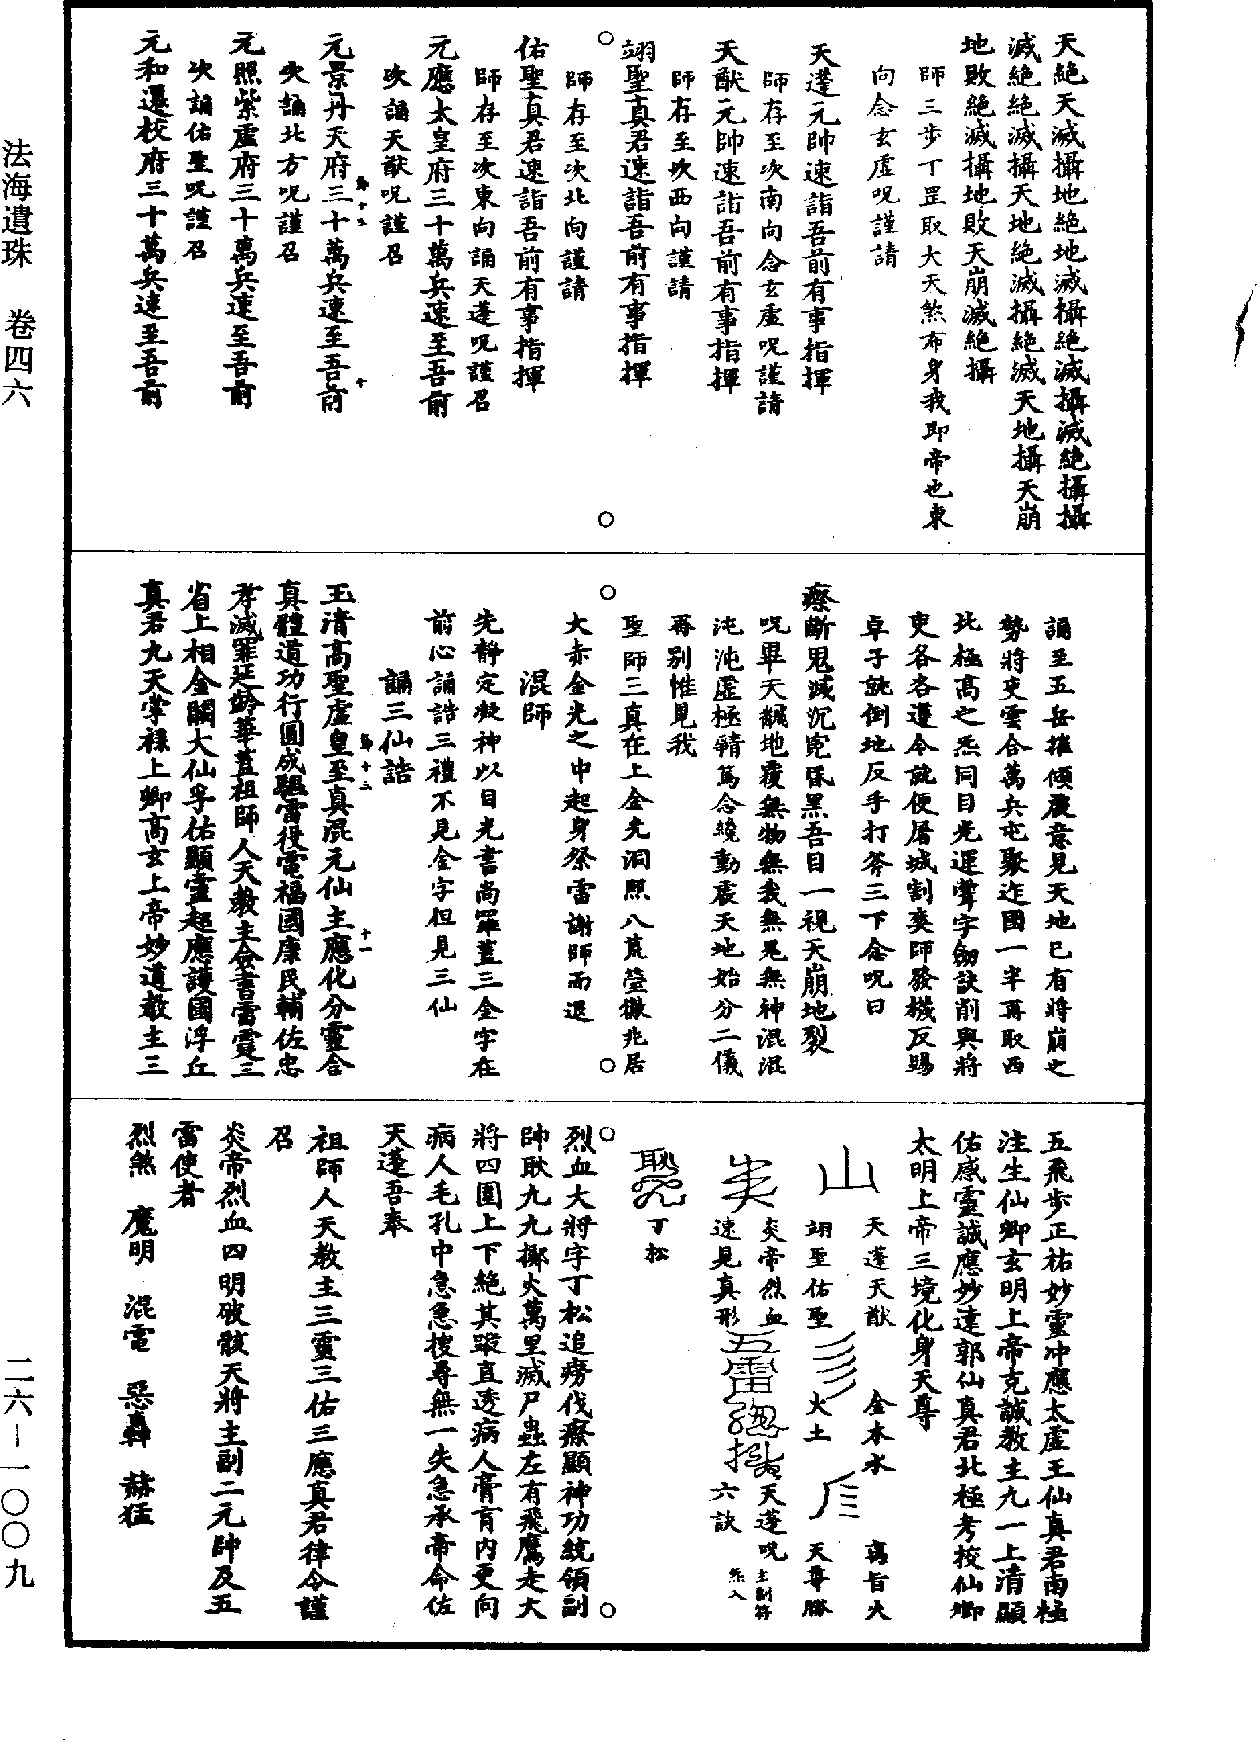 法海遺珠 卷四六
二六－一〇〇九
天絕天滅攝地絕地滅攝絕滅攝滅絕攝攝
滅絕絕滅攝天地絕滅攝絕滅天地攝天崩
地敗絕滅攝地敗天崩滅絕攝
師三步丁罡取大天煞布身我即帝也東
向念玄虛呪謹請
天蓬元帥速詣吾前有事指揮
師存至次南向念玄虛呪謹請
天猷元帥速詣吾前有事指揮
師存至次西向謹請
翊聖真君速詣吾前有事指揮
師存至次北向謹請
佑聖真君速詣吾前有事指揮
師存至次東向誦天蓬呪謹召
元應太皇府三十萬兵速至吾前
次誦天猷呪謹召
元景丹天府三十萬兵速至吾前
次誦北方呪謹召
元照紫虛府三十萬兵速至吾前
次誦佑聖呪謹召
元和遷校府三十萬兵速至吾前
誦至五岳摧傾震意見天地已有將崩之
勢將吏雲合萬兵屯聚迮國一半再取西
北極高之炁同目光運聲字劒訣削與將
吏各各運令訖便屠城割奕師發機反賜
卓子訖倒地反手打斧三下念呪曰
瘵斷鬼滅沉寃昏黑吾目一視天崩地裂
呪畢天飜地覆無物無我無鬼無神混混
沌沌虛極靜篤念繞動震天地始分二儀
再別惟見我
聖師三真在上金光洞照八荒瑩徹兆居
大赤金光之中起身祭雷謝師而退
混師
先靜定凝神以目光書尚羅蓋三金字在
前心誦誥三禮不見金字但見三仙
誦三仙誥
玉清高聖虛皇至真混元仙主應化分靈合
真體道功行圓成驅雷役電福國康民輔佐忠
孝滅罪延齡華蓋祖師人天教主僉書雷霆三
省上相金闕大仙孚佑顯靈超應護國浮丘
真君九天掌祿上卿高玄上帝妙道教主三
五飛步正祐妙靈冲應太虛王仙真君南極
注生仙卿玄明上帝克誠教主九一上清顯
佑感靈誠應妙達郭仙真君北極考校仙卿
太明上帝三境化身天尊
天蓬天猷 金木水 寫旨火
翊聖佑聖 火土 天尊勝
炎帝烈血 天蓬呪 主副符
速見真形 六訣 系入
丁松
烈血大將字丁松追癆伐瘵顯神功統領副
帥耿九九擲火萬里滅尸蟲左有飛鷹走犬
將四圍上下絕其蹤直透病人膏肓內更向
病人毛孔中急急搜尋無一失急承帝命佐
天蓬吾奉
祖師人天教主三靈三佑三應真君律令謹
召
炎帝烈血四明破骸天將主副二元帥及五
雷使者
烈煞 魔明 混電 惡轟 赫猛